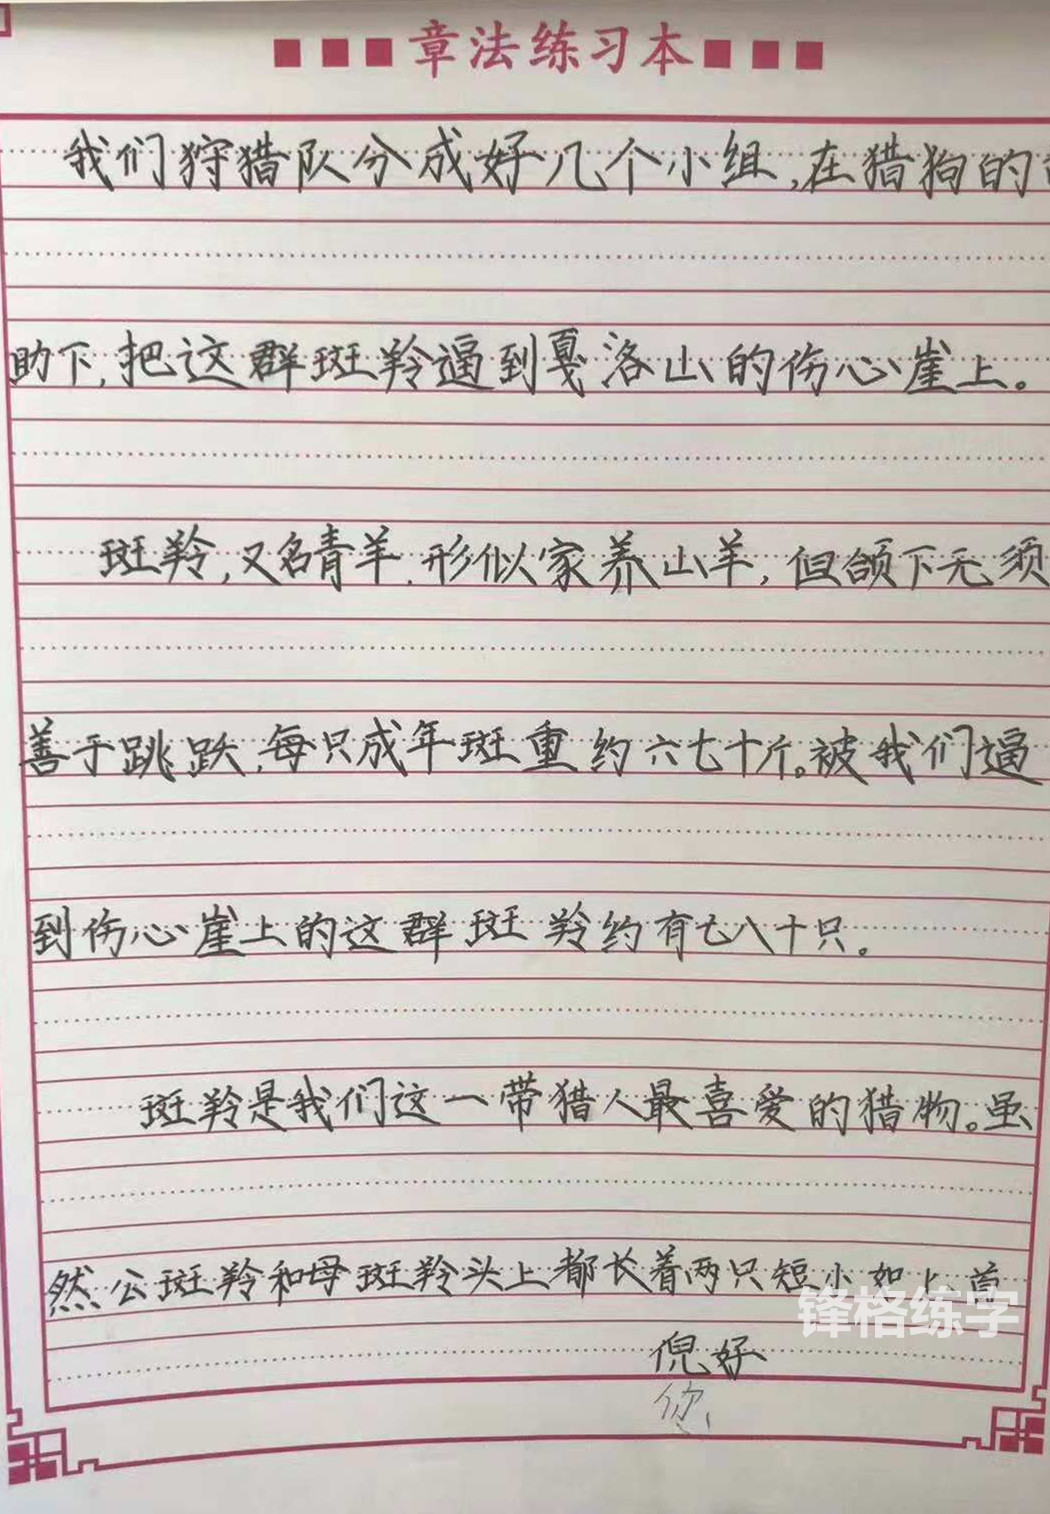 章法练习本
我们狩猎队分成好几个小组,在猎狗的
助下,把这群斑羚逼到戛洛山的伤心崖上。
斑羚,又名青羊,形似家养山羊,但颌下无须
善于跳跃,每只成年斑重约六七十斤。被我们逼
到伤心崖上的这群斑羚约有七八十只。
斑羚是我们这一带猎人最喜爱的猎物。虽
然公斑羚和母斑羚头上都长着两只短小如上首
锋格练字
倪好
您